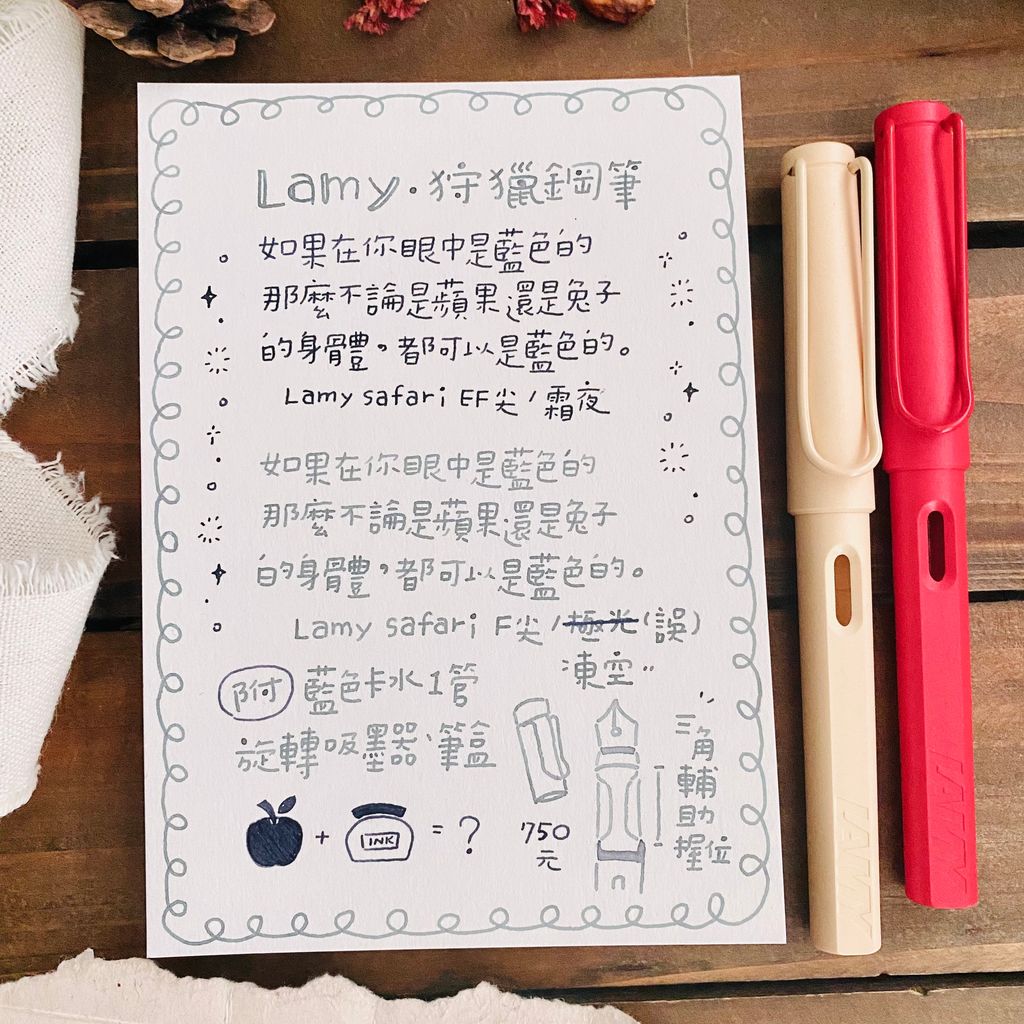 Lamy·狩獵鋼筆
如果在你眼中是藍色的
那麼不論是蘋果還是兔子
的身體，都可以是藍色的。
Lamy safari EF尖/霜夜
如果在你眼中是藍色的
那麼不論是蘋果還是兔子
的身體，都可以是藍色的。
Lamy safari F尖/極光(誤)
凍空
附 藍色卡水1管
旋轉吸墨器、筆盒
+ INK = ?
750
元
三角輔助握位
LAMY
LAMY